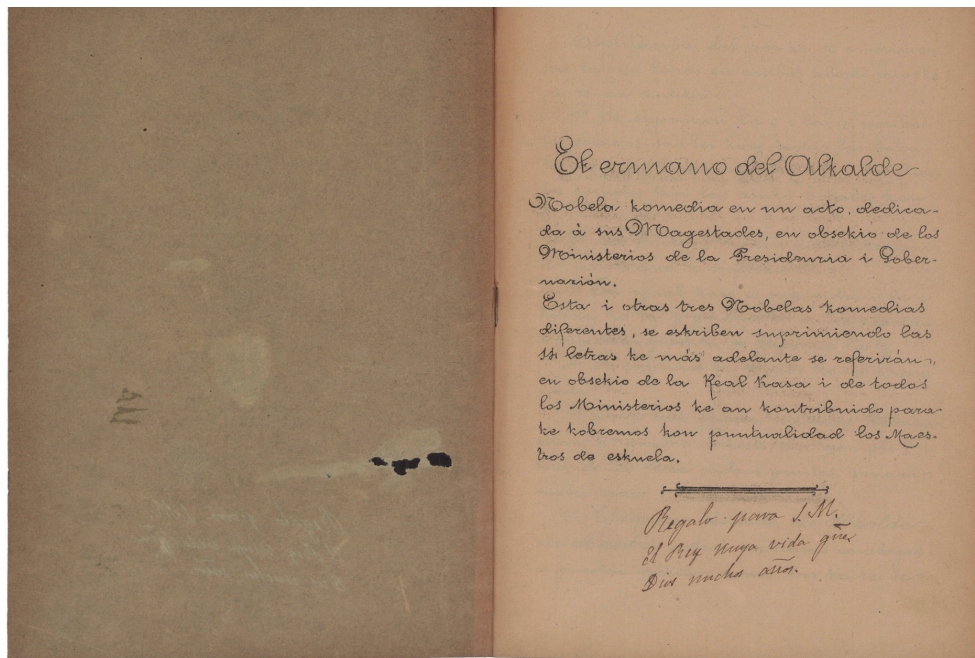 El ermano del Alkalde
Nobela komedia en un acto, dedica-
da á sus Magestades, en obsekio de los
Ministerios de la Presidenzia i Gober-
nazión.
Esta i otras tres Nobelas komedias
diferentes, se eskriben suprimiendo las
14 letras ke más adelante se referirán,
en obsekio de la Real Kasa i de todos
los Ministerios ke an kontribuido para
ke kobremos kon puntualidad los Maes-
tros de eskuela.
Regalo para S. M.
El Rey cuya vida gũe
Dios muchos años.